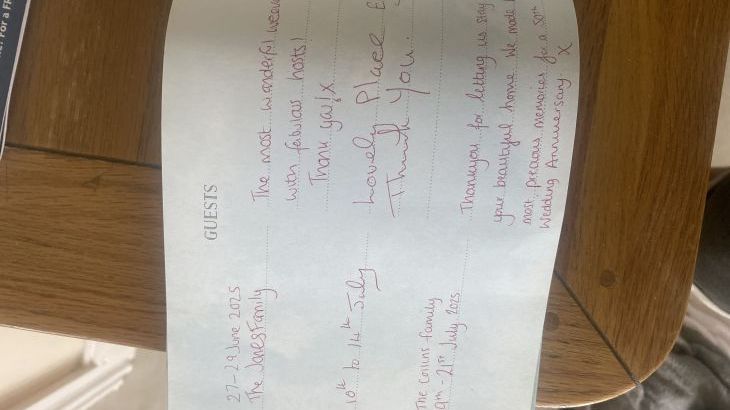 GUESTS
27-29 June 2025
The Jones Family
The most wonderful
with fabulous hosts!
Thank you! X
10th to 14th July
Lovely Place
Thank You.
The Collins family
21st July 2025
Thankyou for letting us stay
your beautiful home. We made
most precious memories for a 50th
Wedding Anniversary. X